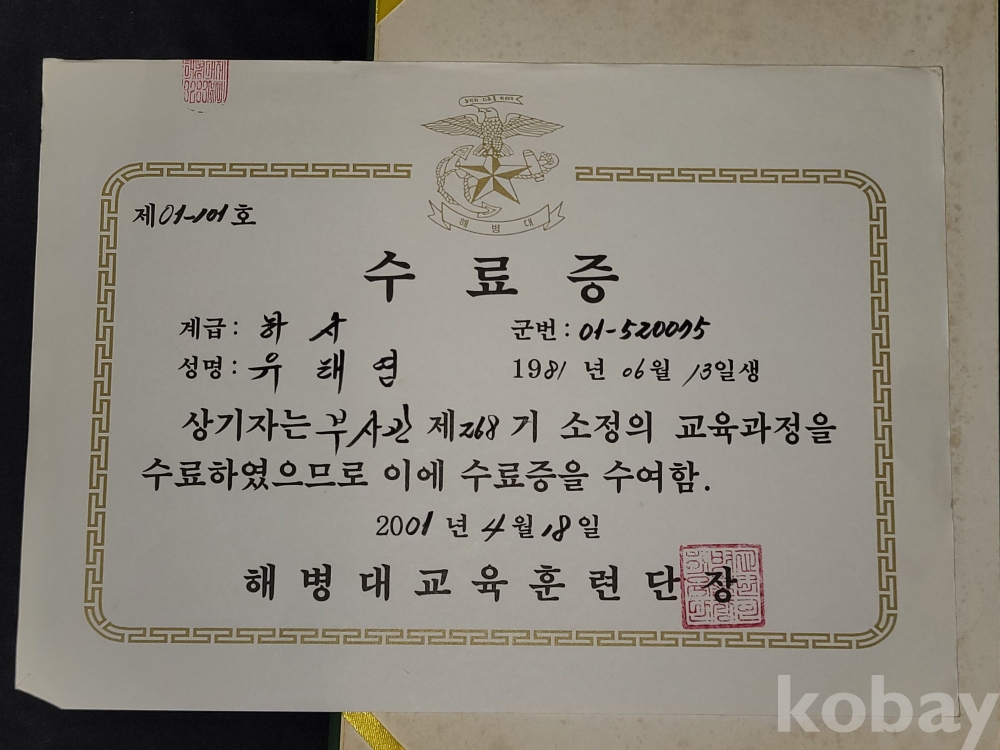 제01-101호
해병대
수료증
계급: 하사 군번: 01-520075
성명: 유태엽 1981년 06월 13일생
상기자는 부사관 제268기 소정의 교육과정을
수료하였으므로 이에 수료증을 수여함.
2001년 4월 18일
해병대교육훈련단장
kobay